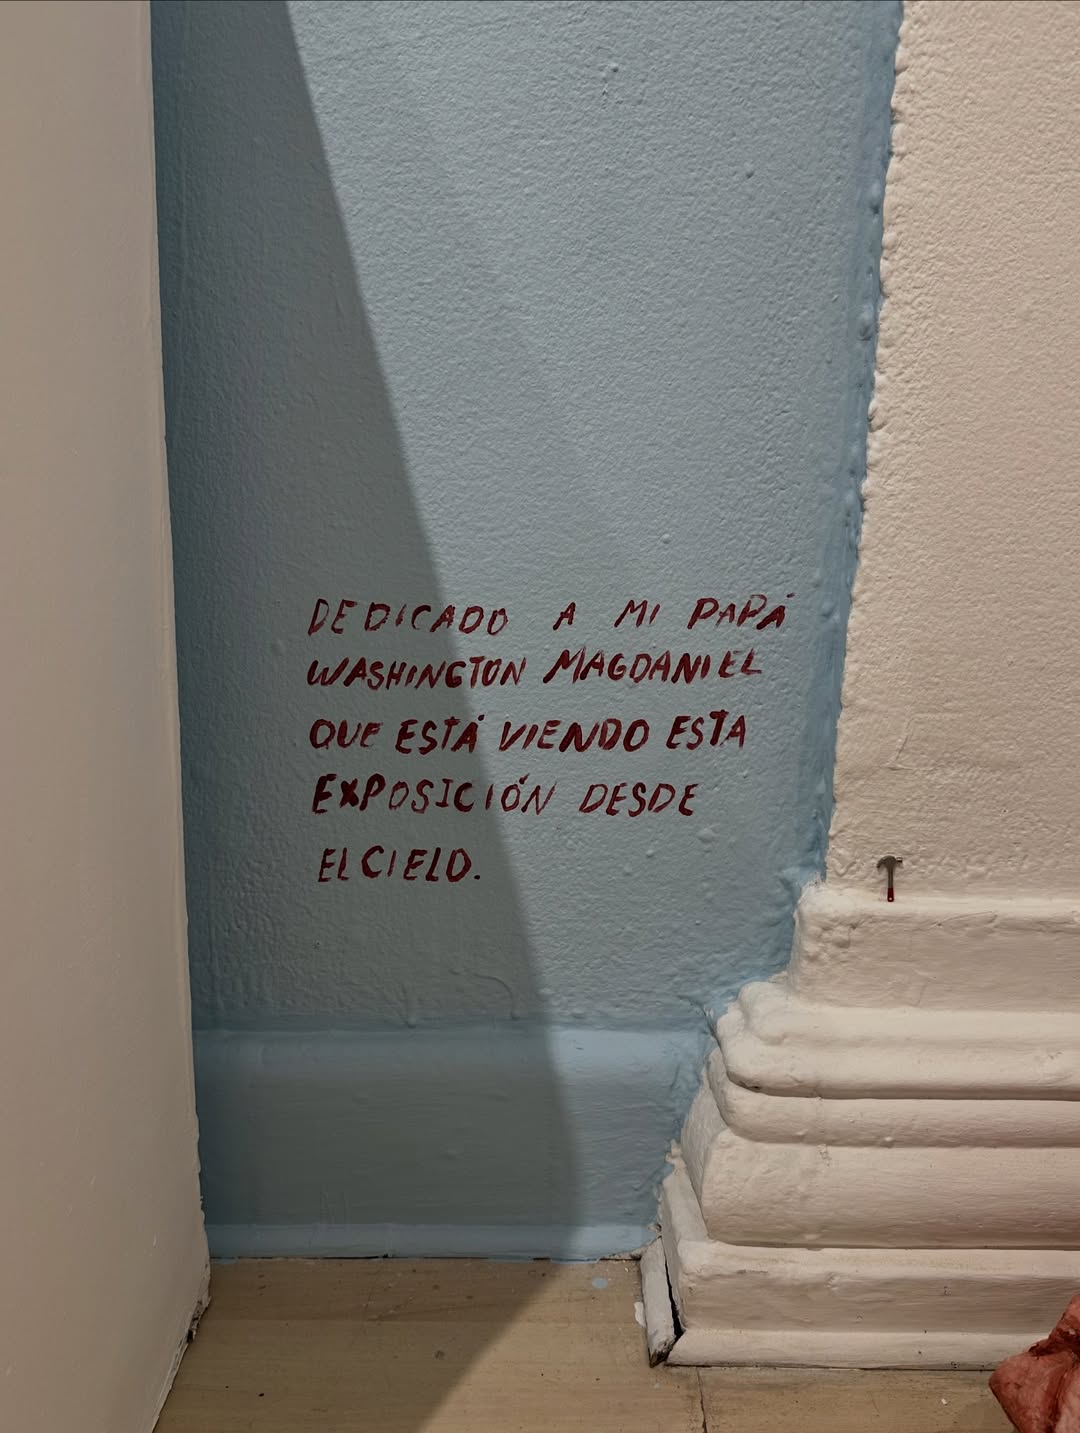 DEDICADO A MI PAPÁ
WASHINGTON MAGDANIEL
QUE ESTÁ VIENDO ESTA
EXPOSICIÓN DESDE
EL CIELO.